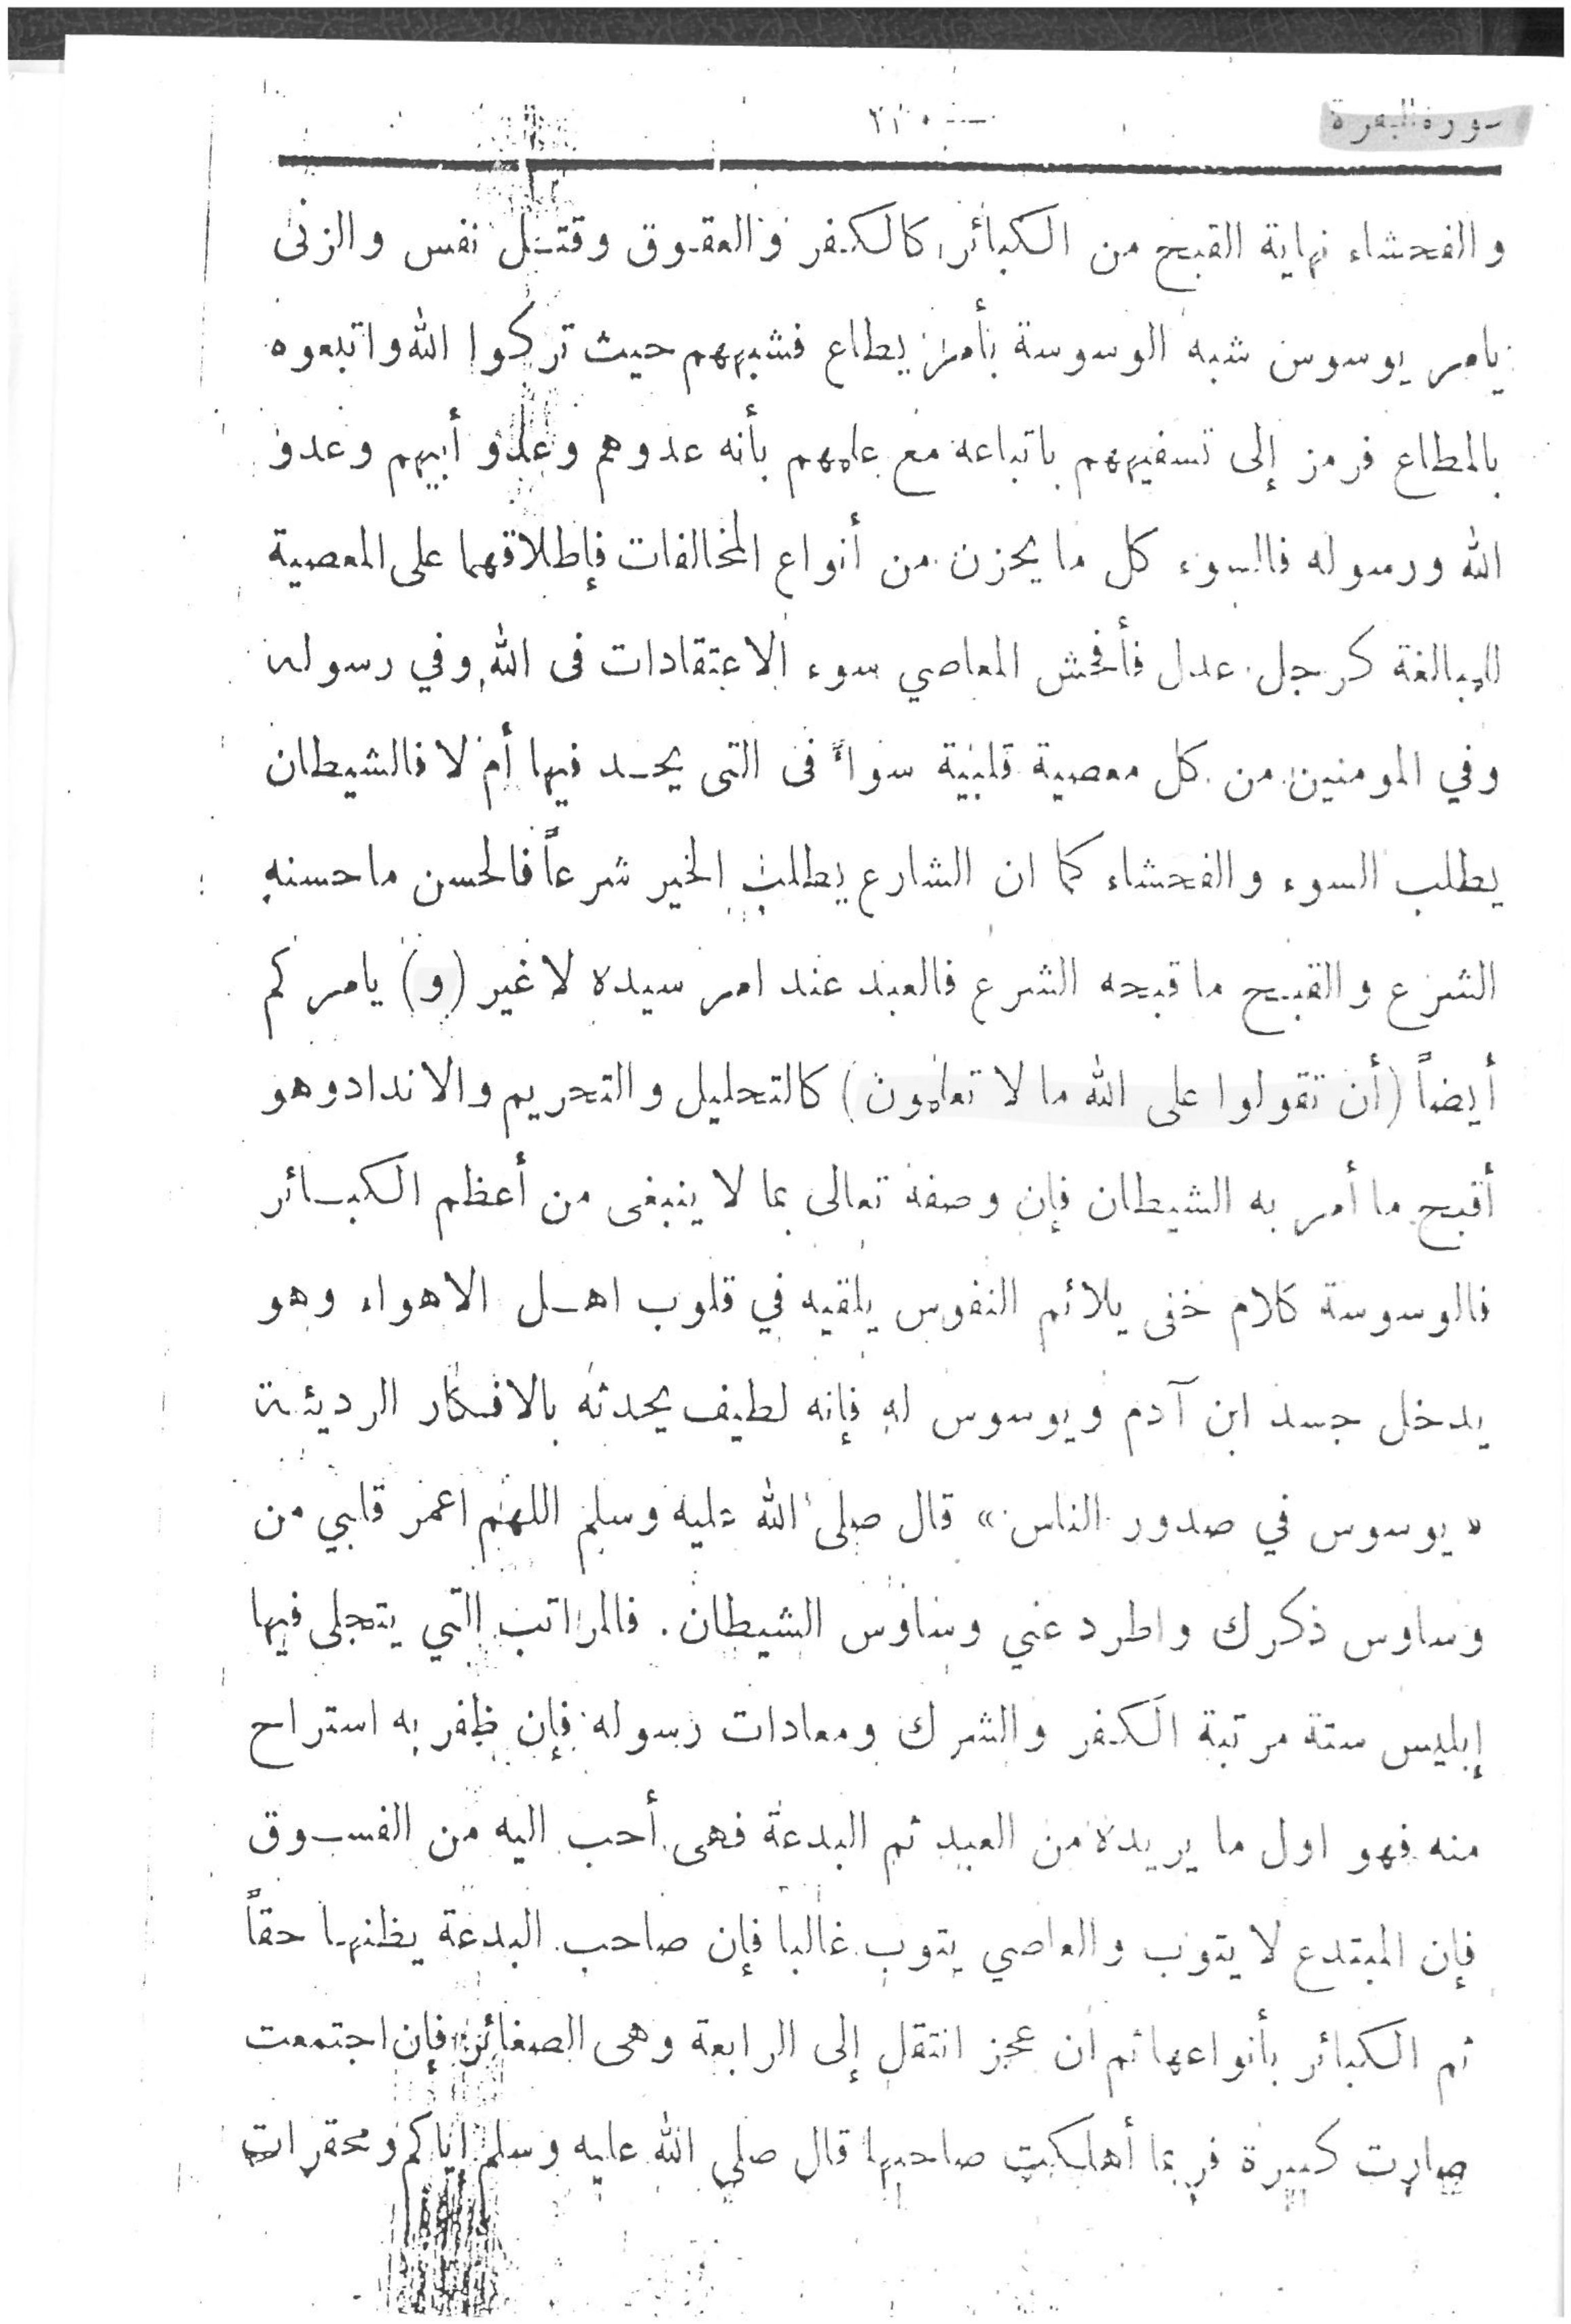 سورة البقرة
والفحشاء نهاية القبح من الكبائر كالكفر والعقوق وقتل نفس والزنى
يامر يوسوس شبه الوسوسة بأمر يطاع فشبههم حيث تركوا الله واتبعوه
بالمطاع فرمز إلى تسفيههم باتباعه مع علمهم بأنه عدوهم وعدو أبيهم وعدو
الله ورسوله فالسوء كل ما يحزن من أنواع المخالفات فإطلاقهما على المعصية
للمبالغة كرجل عدل فأفحش المعاصي سوء الاعتقادات فى الله وفي رسوله
وفي المومنين من كل معصية قلبية سواً فى التى يحد فيها أم لا فالشيطان
يطلب السوء والفحشاء كما ان الشارع يطلب الخير شرعاً فالحسن ما حسنه
الشرع والقبح ما قبحه الشرع فالعبد عند امر سيده لا غير (و) يامركم
أيضاً (أن تقولوا على الله ما لا تعلمون) كالتحليل والتحريم والانداد وهو
أقبح ما أمر به الشيطان فإن وصفه تعالى بما لا ينبغى من أعظم الكبائر
فالوسوسة كلام خفى يلائم النفوس يلقيه في قلوب اهل الاهواء وهو
يدخل جسد ابن آدم ويوسوس له فإنه لطيف يحدثه بالافكار الرديئة
« يوسوس في صدور الناس » قال صلى الله عليه وسلم اللهم اعمر قلبي من
وساوس ذكرك واطرد عني وساوس الشيطان . فالمراتب التي يتجلى فيها
إبليس ستة مرتبة الكفر والشرك ومعادات رسوله فإن ظفر به استراح
منه فهو اول ما يريده من العبد ثم البدعة فهى أحب اليه من الفسوق
فإن المبتدع لا يتوب والعاصي يتوب غالبا فإن صاحب البدعة يظنها حقاً
ثم الكبائر بأنواعها ثم ان عجز انتقل إلى الرابعة وهى الصغائر فإن اجتمعت
صارت كبيرة فربما أهلكت صاحبها قال صلى الله عليه وسلم اياكم ومحقرات